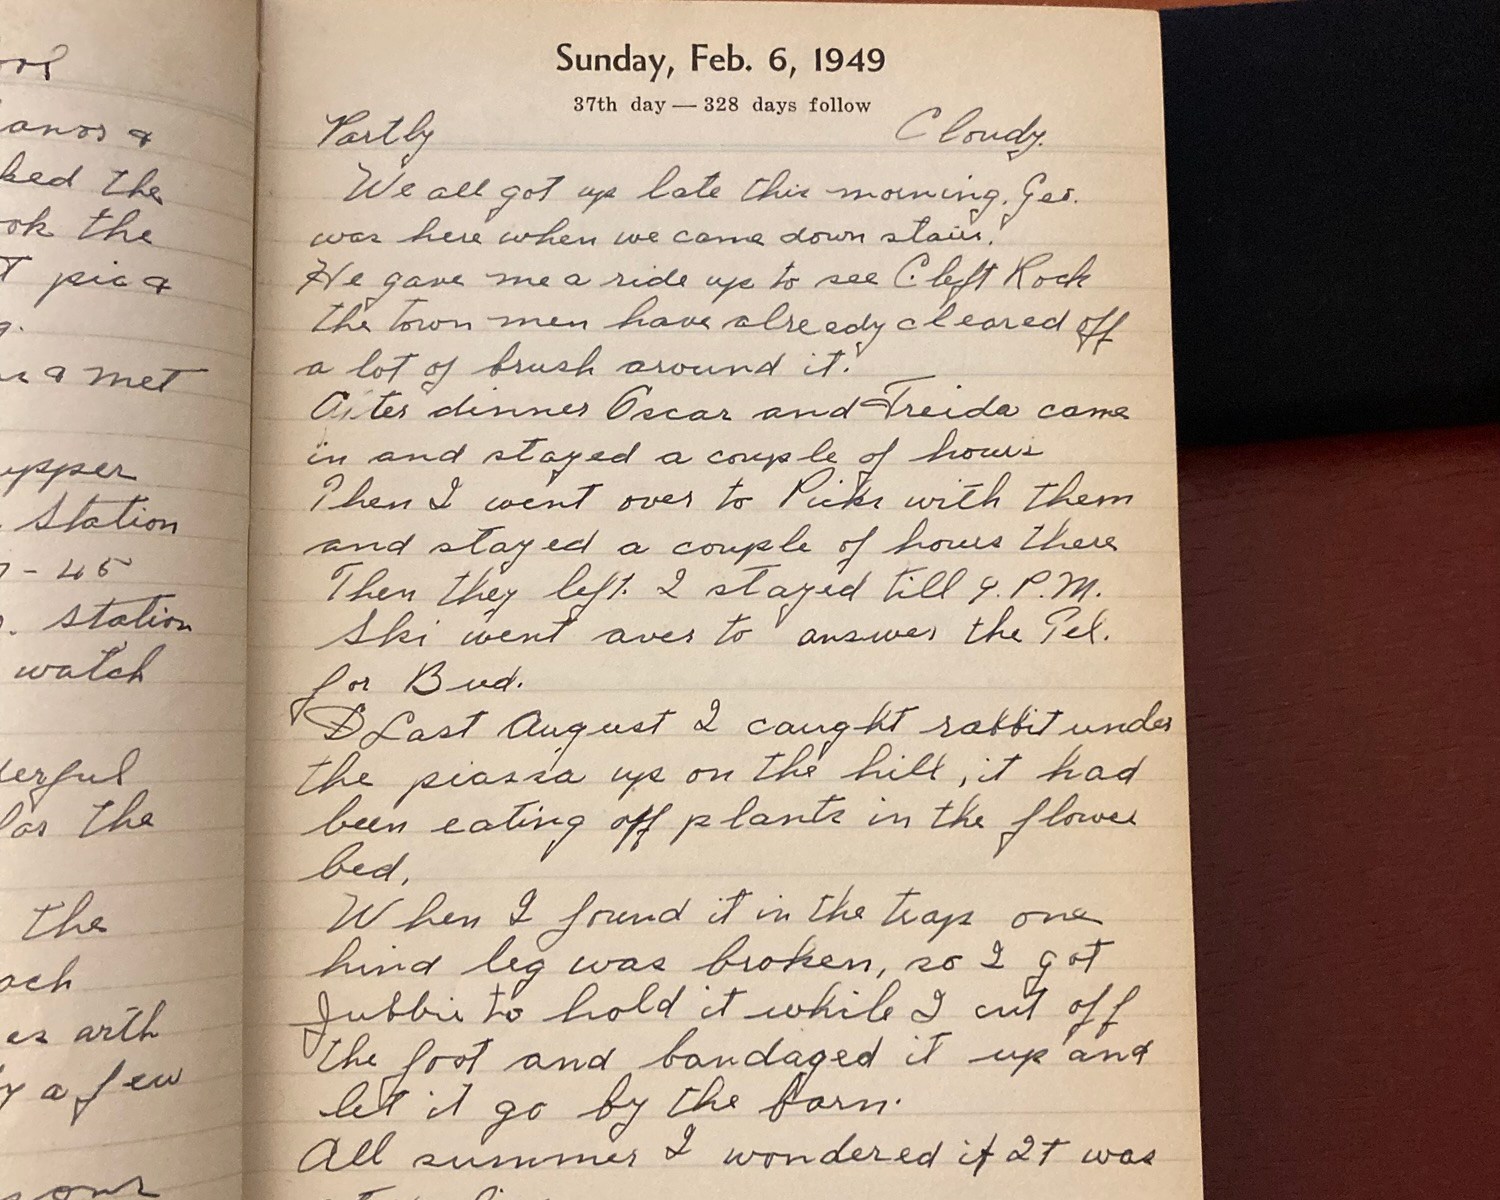 oor
anos &
ked the
ook the
T pic &
g.
& met
upper
. Station
7-45
. Station
watch
derful
for the
the
ach
es arth
y a few
Sunday, Feb. 6, 1949
37th day — 328 days follow
Partly Cloudy.
We all got up late this morning. Geo.
was here when we came down stairs.
He gave me a ride up to see Cleft Rock
the town men have already cleared off
a lot of brush around it.
After dinner Oscar and Freida came
in and stayed a couple of hours
Then I went over to Picks with them
and stayed a couple of hours there
Then they left. I stayed till 9. P.M.
Ski went over to answer the Tel.
for Bud.
Last August I caught rabbit under
the piassa up on the hill, it had
been eating off plants in the flower
bed.
When I found it in the trap one
hind leg was broken, so I got
Jubbie to hold it while I cut off
the foot and bandaged it up and
let it go by the barn.
All summer I wondered if it was